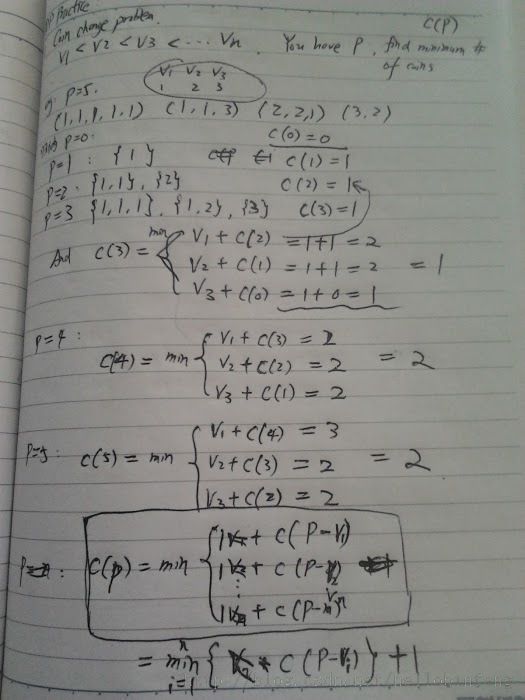 DP practice C(P)
Coin change problem.
V1 < V2 < V3 < ... Vn. You have P, find minimum # of coins
eg. P=5. V1 V2 V3
1 2 3
(1,1,1,1,1) (1,1,3) (2,2,1) (3,2)
P=0. C(0)=0
P=1 : {1} C(1)=1
P=2. {1,1}, {2} C(2) = 1
P=3 {1,1,1}, {1,2}, {3} C(3)=1
And C(3) = min { V1 + C(2) = 1+1 = 2
V2 + C(1) = 1+1 = 2 = 1
V3 + C(0) = 1+0 = 1
P=4 :
C(4) = min { V1 + C(3) = 2
V2 + C(2) = 2 = 2
V3 + C(1) = 2
P=5: C(5) = min { V1 + C(4) = 3
V2 + C(3) = 2 = 2
V3 + C(2) = 2
C(P) = min { 1 + C(P-V1)
1 + C(P-V2)
⋮
1 + C(P-Vn)
= min i=1 n { C(P-Vi) } + 1